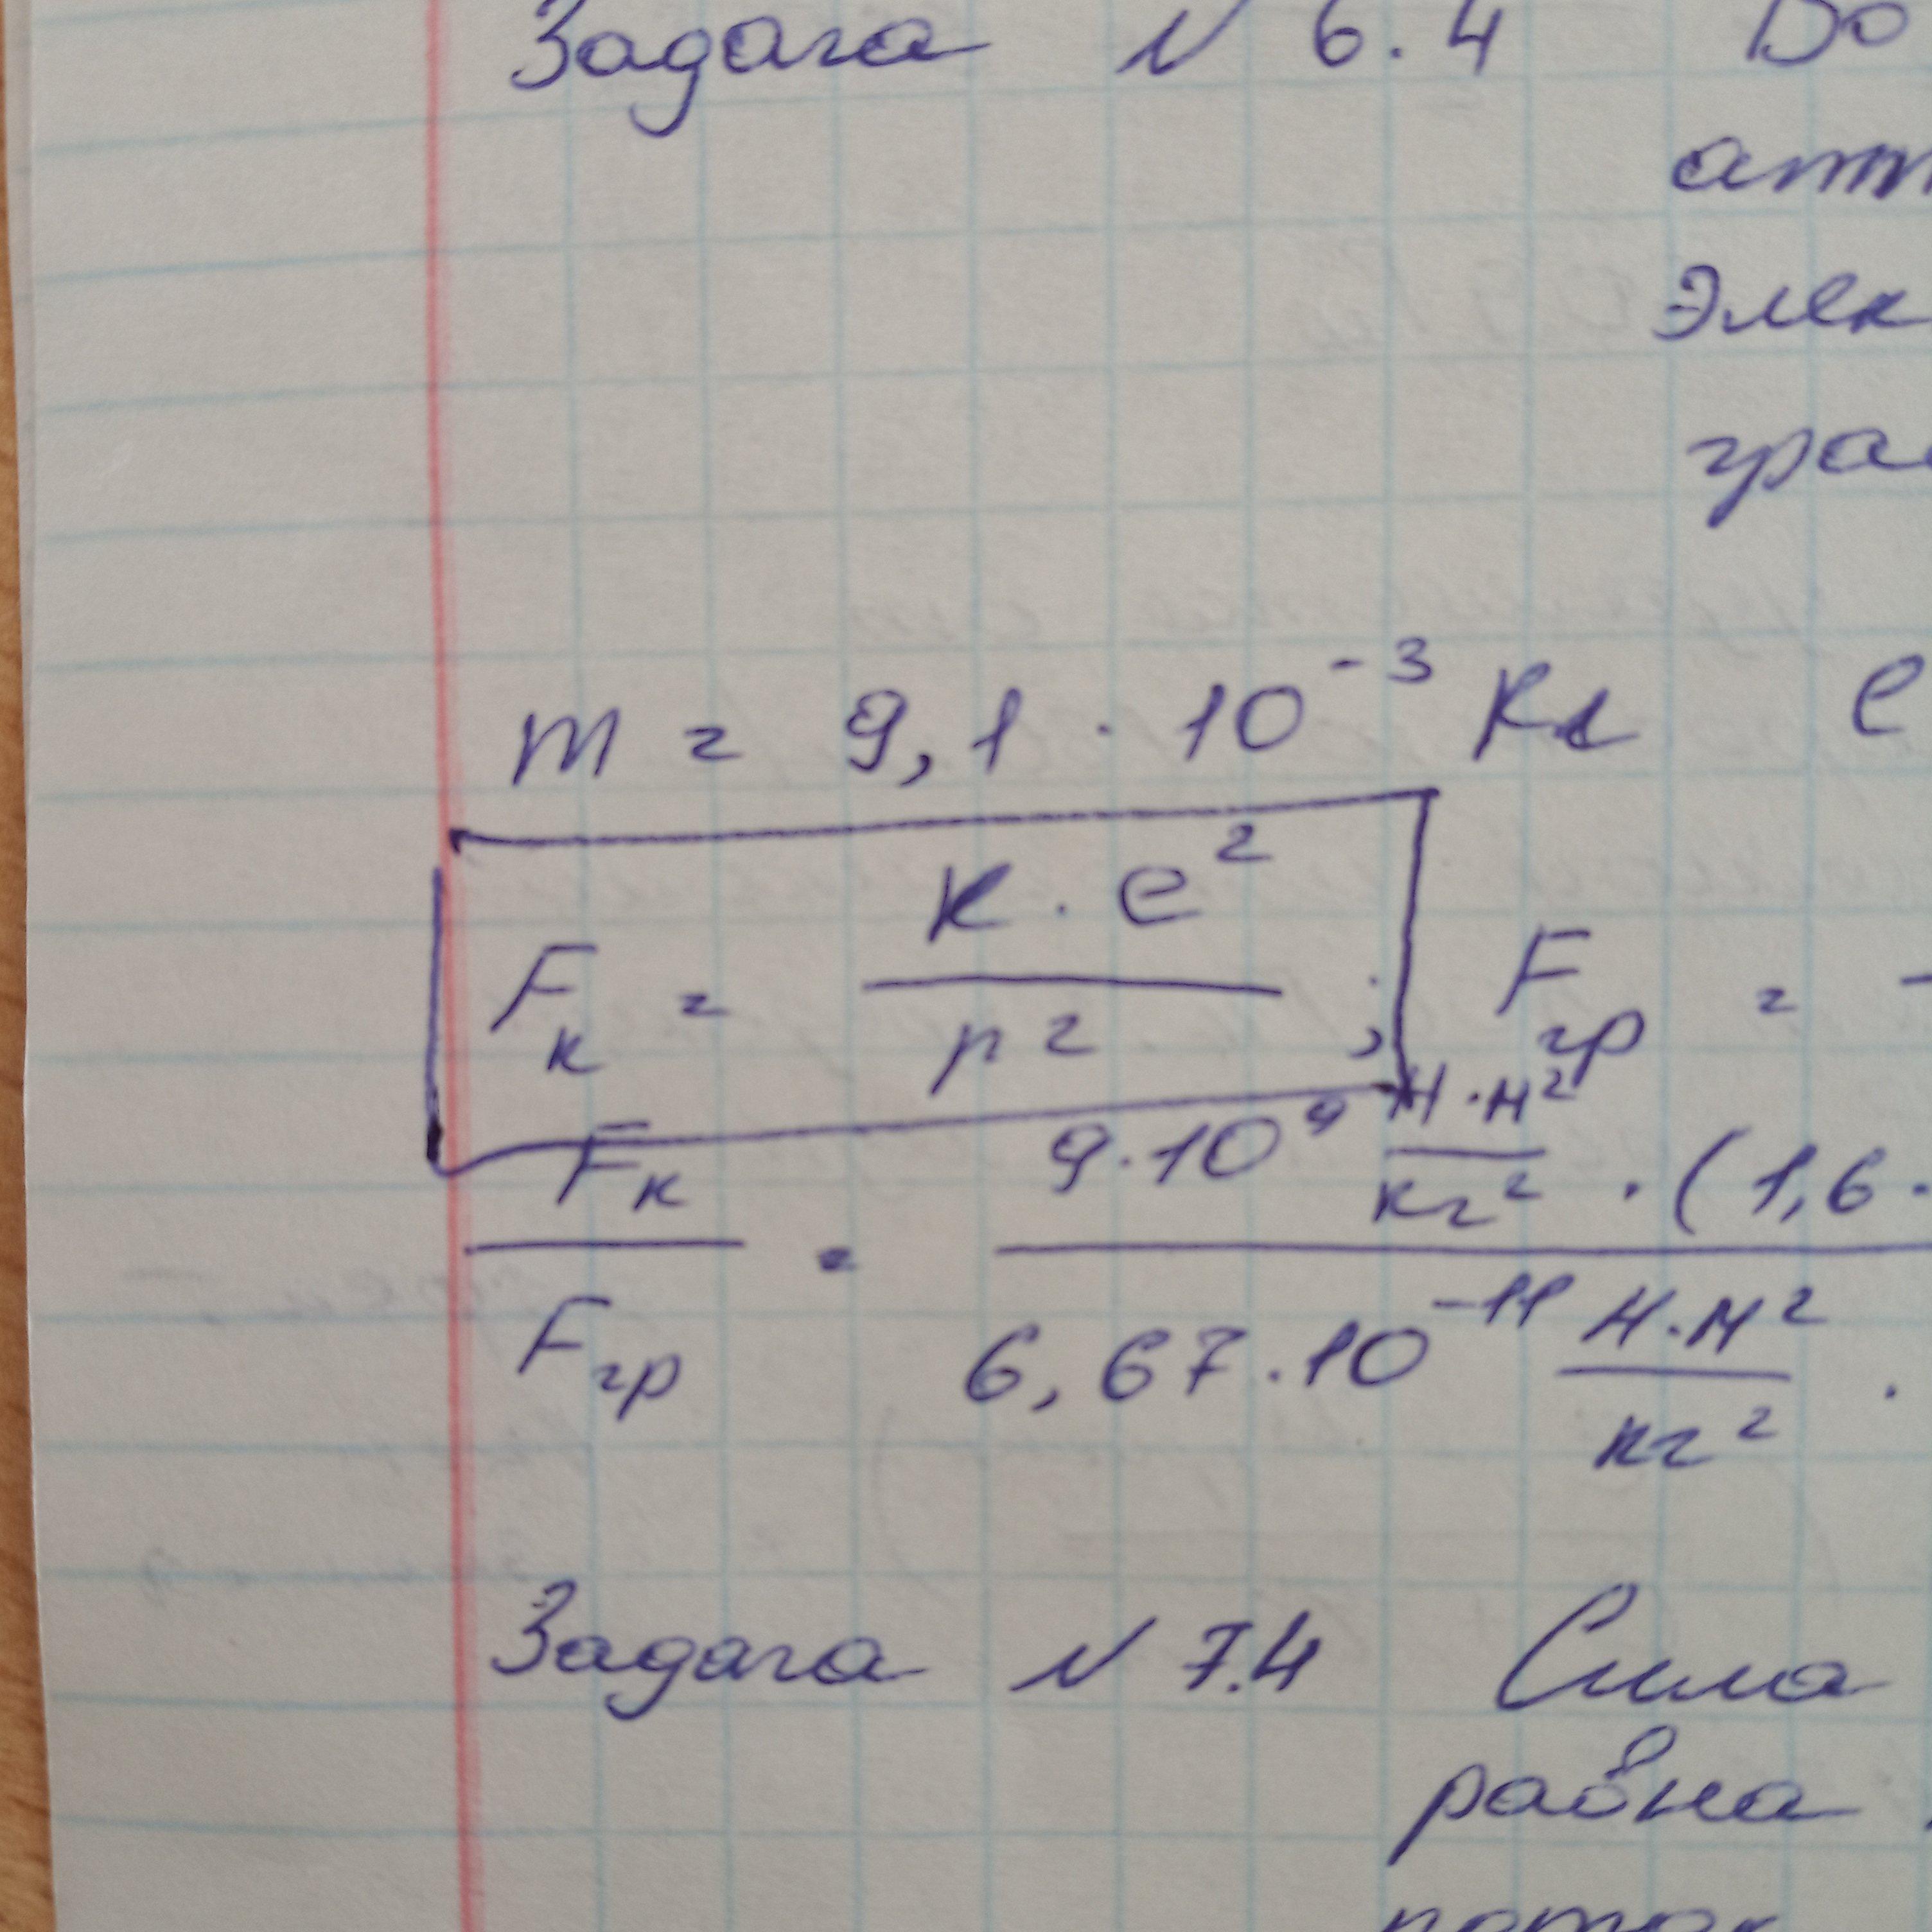 Задача № 6.4 До
атт
элек
грав
m = 9,1 · 10⁻³ Кл е
Fк = К · е² / r² ; Fгр = -
Fк / Fгр = 9·10⁹ Н·м²/кг² · (1,6 · / 6,67·10⁻¹¹ Н·м²/кг² ·
Задача № 7.4 Сила
равна